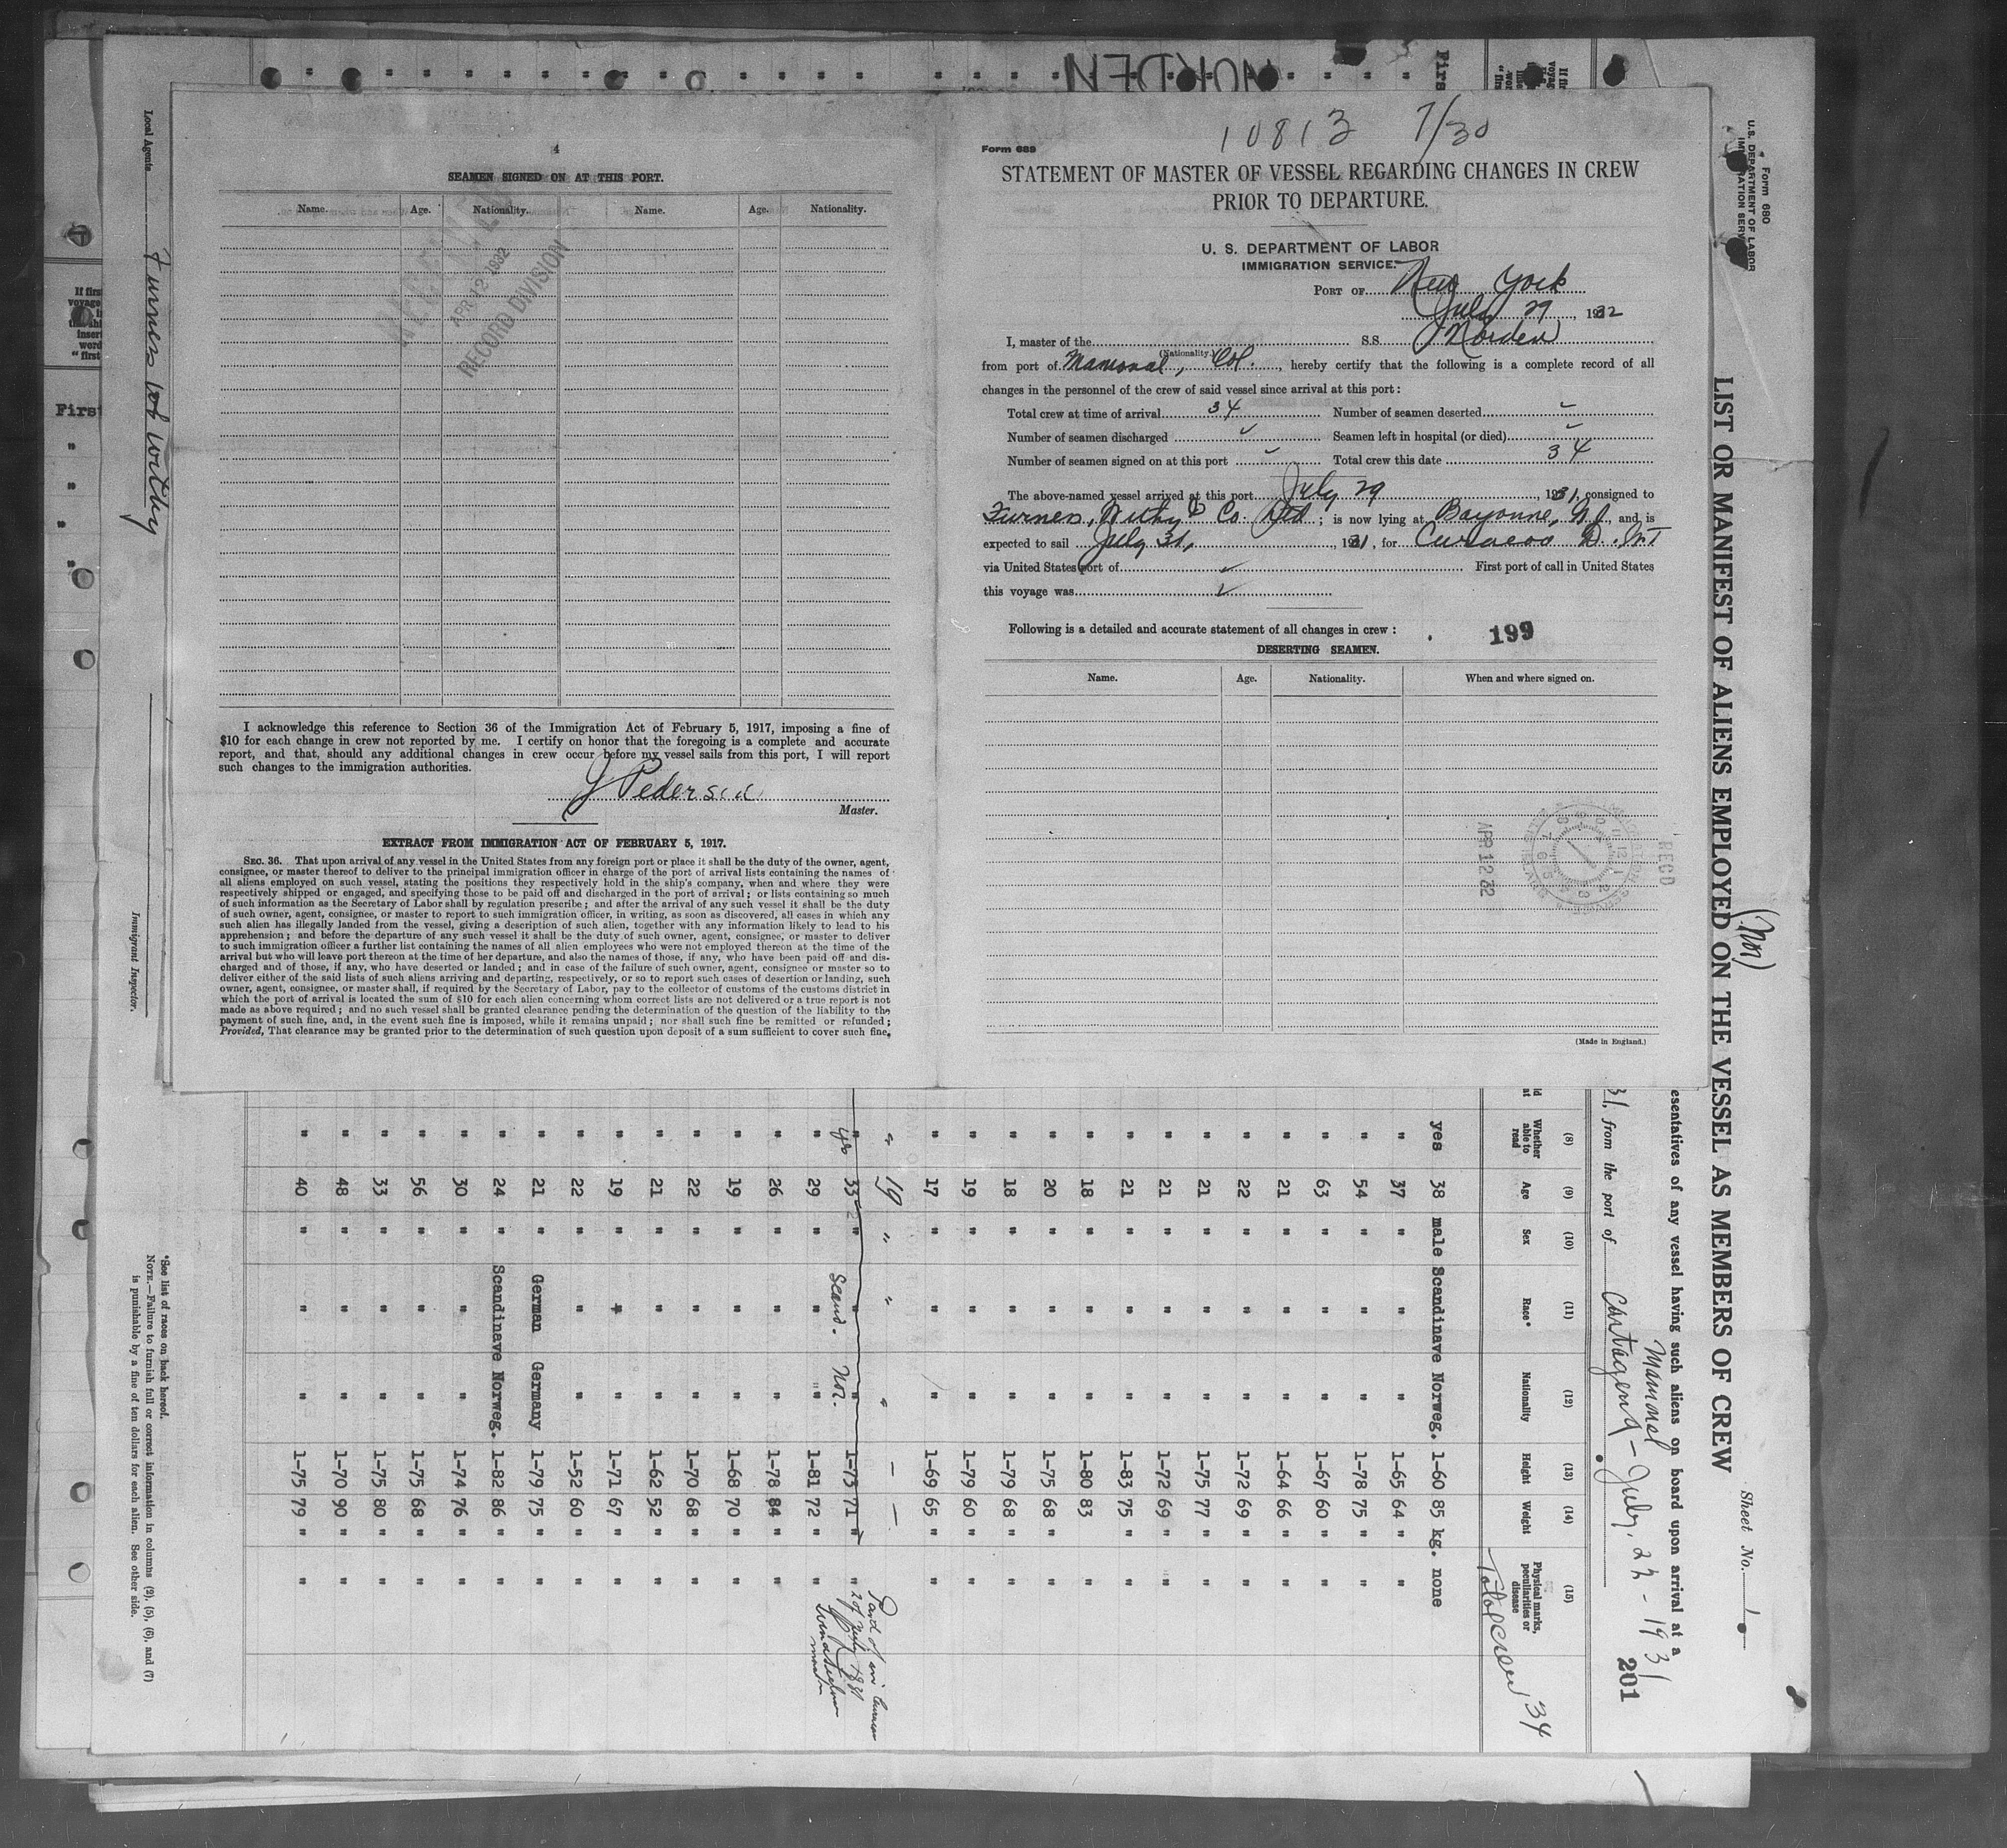 NURDEN
10813 7/30
Form 689
STATEMENT OF MASTER OF VESSEL REGARDING CHANGES IN CREW
PRIOR TO DEPARTURE.
U. S. DEPARTMENT OF LABOR
IMMIGRATION SERVICE.
PORT OF New York
July 29, 1932
I, master of the S.S. Norden
(Nationality.)
from port of Mamonal, Col., hereby certify that the following is a complete record of all
changes in the personnel of the crew of said vessel since arrival at this port:
Total crew at time of arrival 34 Number of seamen deserted ✓
Number of seamen discharged ✓ Seamen left in hospital (or died) ✓
Number of seamen signed on at this port ✓ Total crew this date 34
The above-named vessel arrived at this port July 29, 1931, consigned to
Furness, Withy & Co. Ltd; is now lying at Bayonne, N.J., and is
expected to sail July 31, 1931, for Curacao D.
via United States port of ✓ First port of call in United States
this voyage was ✓
Following is a detailed and accurate statement of all changes in crew:
199
DESERTING SEAMEN.
Name. Age. Nationality. When and where signed on.
REC'D
APR 12 32
(Made in England.)
4
SEAMEN SIGNED ON AT THIS PORT.
Name. Age. Nationality. Name. Age. Nationality.
RECEIVED
APR 12 1932
RECORD DIVISION
I acknowledge this reference to Section 36 of the Immigration Act of February 5, 1917, imposing a fine of
$10 for each change in crew not reported by me. I certify on honor that the foregoing is a complete and accurate
report, and that, should any additional changes in crew occur before my vessel sails from this port, I will report
such changes to the immigration authorities.
J Pedersen
Master.
EXTRACT FROM IMMIGRATION ACT OF FEBRUARY 5, 1917.
SEC. 36. That upon arrival of any vessel in the United States from any foreign port or place it shall be the duty of the owner, agent,
consignee, or master thereof to deliver to the principal immigration officer in charge of the port of arrival lists containing the names of
all aliens employed on such vessel, stating the positions they respectively hold in the ship's company, when and where they were
respectively shipped or engaged, and specifying those to be paid off and discharged in the port of arrival; or lists containing so much
of such information as the Secretary of Labor shall by regulation prescribe; and after the arrival of any such vessel it shall be the duty
of such owner, agent, consignee, or master to report to such immigration officer, in writing, as soon as discovered, all cases in which any
such alien has illegally landed from the vessel, giving a description of such alien, together with any information likely to lead to his
apprehension; and before the departure of any such vessel it shall be the duty of such owner, agent, consignee, or master to deliver
to such immigration officer a further list containing the names of all alien employees who were not employed thereon at the time of the
arrival but who will leave port thereon at the time of her departure, and also the names of those, if any, who have been paid off and dis-
charged and of those, if any, who have deserted or landed; and in case of the failure of such owner, agent, consignee or master so to
deliver either of the said lists of such aliens arriving and departing, respectively, or so to report such cases of desertion or landing, such
owner, agent, consignee, or master shall, if required by the Secretary of Labor, pay to the collector of customs of the customs district in
which the port of arrival is located the sum of $10 for each alien concerning whom correct lists are not delivered or a true report is not
made as above required; and no such vessel shall be granted clearance pending the determination of the question of the liability to the
payment of such fine, and, in the event such fine is imposed, while it remains unpaid; nor shall such fine be remitted or refunded;
Provided, That clearance may be granted prior to the determination of such question upon deposit of a sum sufficient to cover such fine,
Form 680
U.S. DEPARTMENT OF LABOR
IMMIGRATION SERVICE
LIST OR MANIFEST OF ALIENS EMPLOYED ON THE VESSEL AS MEMBERS OF CREW
(Nor)
Sheet No. 1
esentatives of any vessel having such aliens on board upon arrival at a
Mamonal
31, from the port of Cartagena - July. 22 - 1931
201
(8) (9) (10) (11) (12) (13) (14) (15)
Whether able to read Age Sex Race* Nationality Height Weight Physical marks, peculiarities or disease
Total crew 34
yes 38 male Scandinave Norweg. 1-60 85 kg. none
" 37 " " " 1-65 64 " "
" 54 " " " 1-78 75 " "
" 63 " " " 1-67 60 " "
" 21 " " " 1-64 66 " "
" 22 " " " 1-72 69 " "
" 21 " " " 1-75 77 " "
" 21 " " " 1-72 69 " "
" 21 " " " 1-83 75 " "
" 18 " " " 1-80 83 "
" 20 " " " 1-75 68 " "
" 18 " " " 1-79 68 " "
" 19 " " " 1-79 60 " "
" 17 " " " 1-69 65 " "
" 19 " " " — —
" 33 " " " 1-73 71 " "
yes Scand. Nor.
Paid of in Curacao
2 of July 1931
" 29 " " " 1-81 72 " "
" 26 " " " 1-78 84 " "
" 19 " " " 1-68 70 " "
" 22 " " " 1-70 68 " "
" 21 " " " 1-62 52 " "
" 19 " " " 1-71 67 " "
" 22 " " " 1-52 60 " "
" 21 " German Germany 1-79 75 " "
" 24 " Scandinave Norweg. 1-82 86 " "
" 30 " " " 1-74 76 " "
" 56 " " " 1-75 68 " "
" 33 " " " 1-75 80 " "
" 48 " " " 1-70 90 " "
" 40 " " " 1-75 79 " "
*See list of races on back hereof.
NOTE.—Failure to furnish full or correct information in columns (2), (5), (6), and (7)
is punishable by a fine of ten dollars for each alien. See other side.
Local Agents Furness Withy
Immigrant Inspector.
First